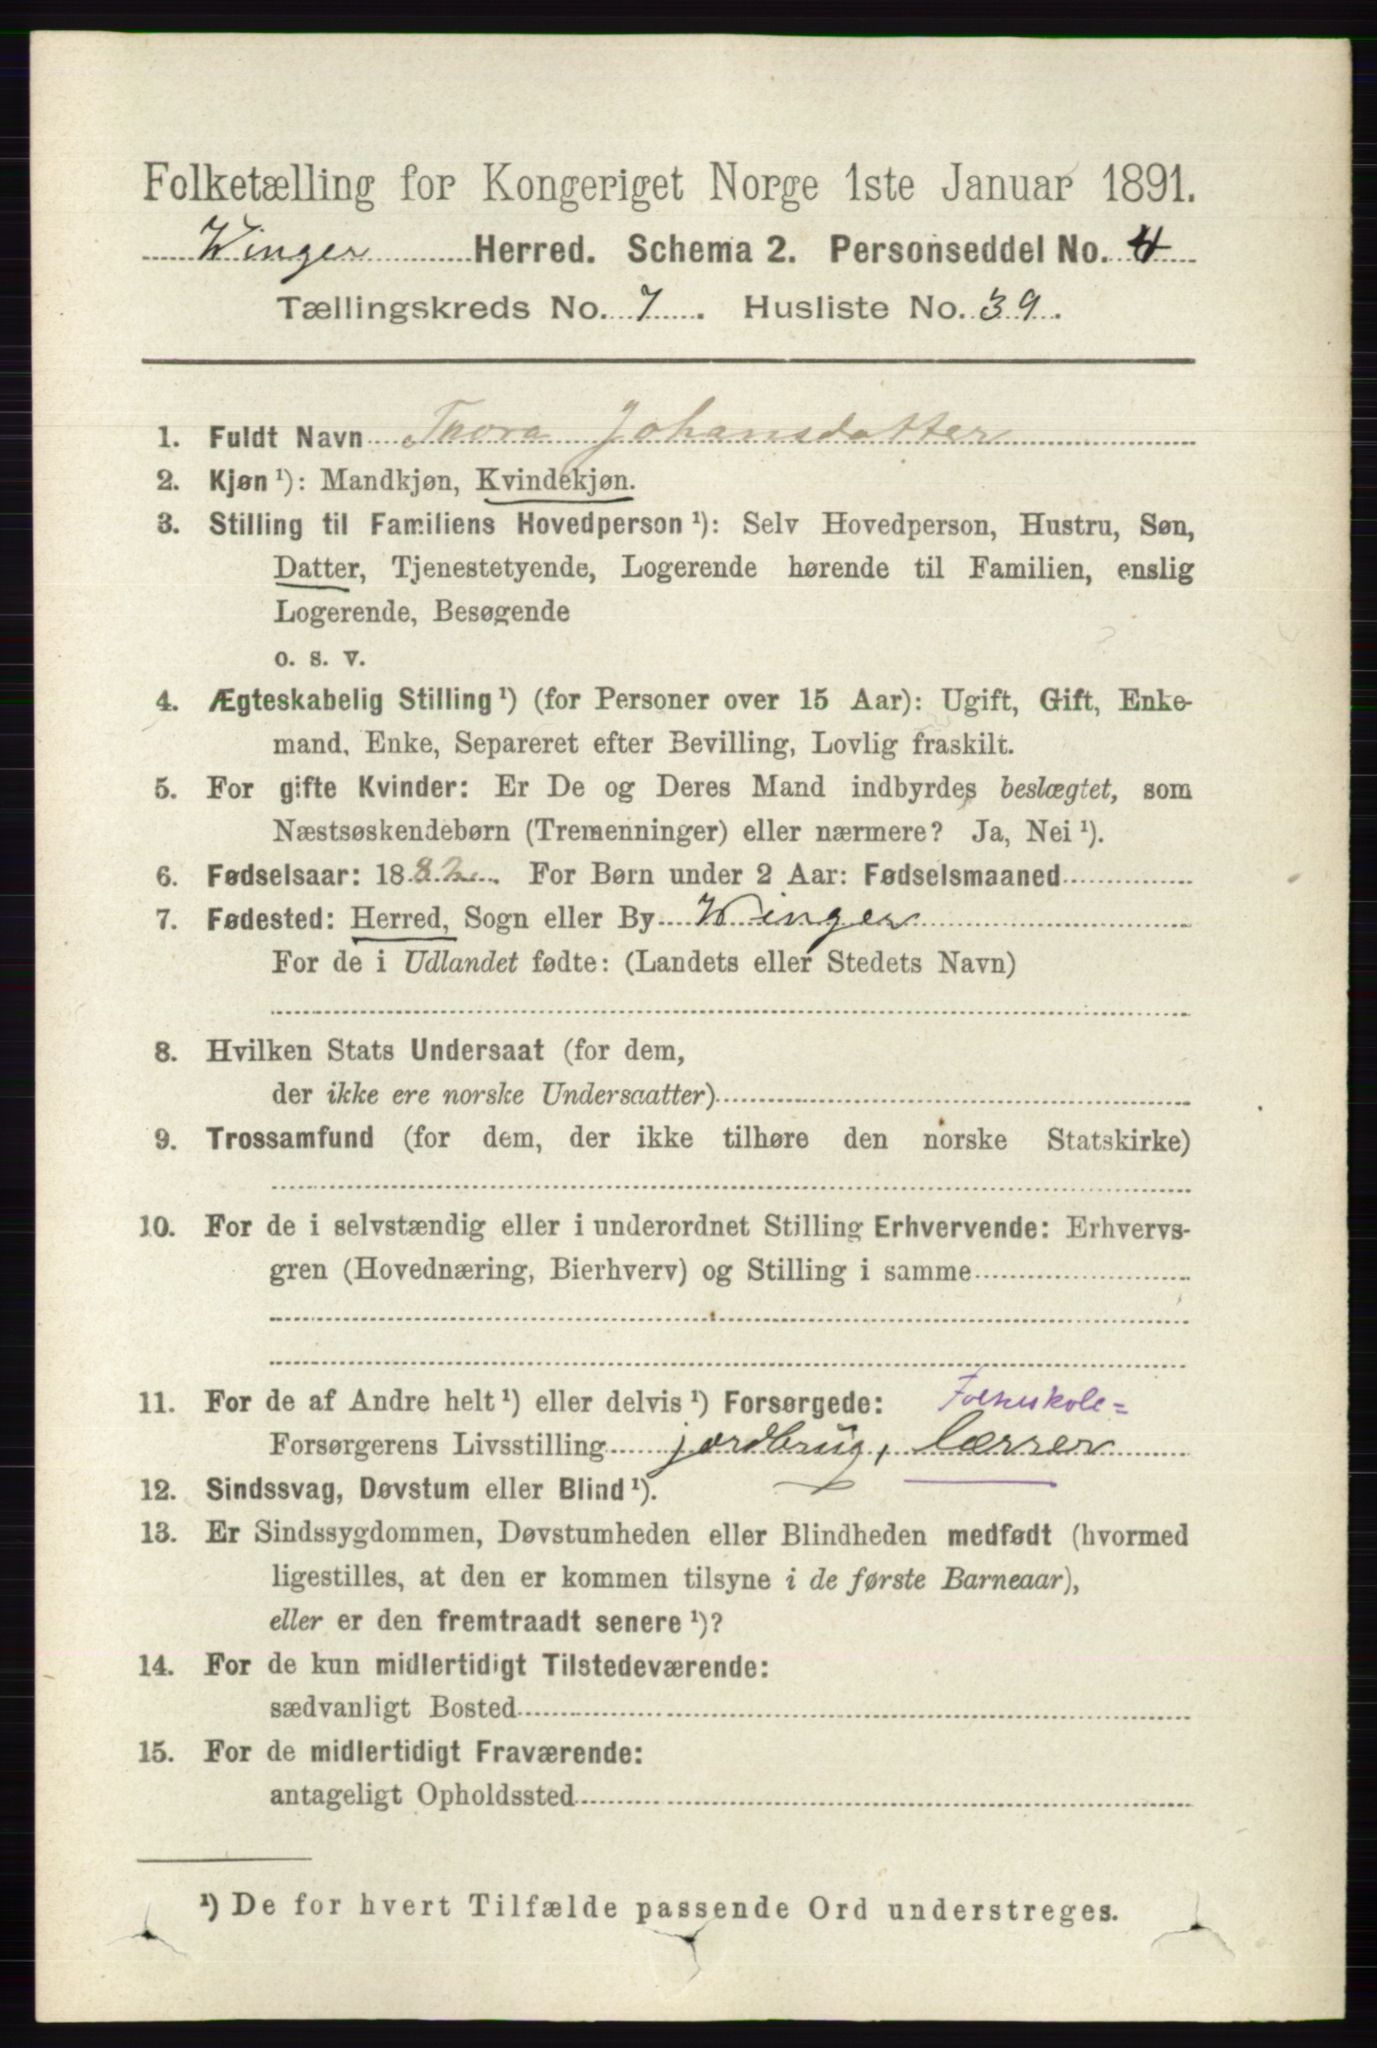 Folketælling for Kongeriget Norge 1ste Januar 1891.
Winger Herred. Schema 2. Personseddel No. 4
Tællingskreds No. 7. Husliste No. 39.
1. Fuldt Navn Thora Johansdatter
2. Kjøn ¹): Mandkjøn, Kvindekjøn.
3. Stilling til Familiens Hovedperson ¹): Selv Hovedperson, Hustru, Søn,
Datter, Tjenestetyende, Logerende hørende til Familien, enslig
Logerende, Besøgende
o. s. v.
4. Ægteskabelig Stilling ¹) (for Personer over 15 Aar): Ugift, Gift, Enke-
mand, Enke, Separeret efter Bevilling, Lovlig fraskilt.
5. For gifte Kvinder: Er De og Deres Mand indbyrdes beslægtet, som
Næstsøskendebørn (Tremenninger) eller nærmere? Ja, Nei ¹).
6. Fødselsaar: 1882. For Børn under 2 Aar: Fødselsmaaned
7. Fødested: Herred, Sogn eller By Winger
For de i Udlandet fødte: (Landets eller Stedets Navn)
8. Hvilken Stats Undersaat (for dem,
der ikke ere norske Undersaatter)
9. Trossamfund (for dem, der ikke tilhøre den norske Statskirke)
10. For de i selvstændig eller i underordnet Stilling Erhvervende: Erhvervs-
gren (Hovednæring, Bierhverv) og Stilling i samme
11. For de af Andre helt ¹) eller delvis ¹) Forsørgede: Folkeskole=
Forsørgerens Livsstilling jordbrug, lærrer
12. Sindssvag, Døvstum eller Blind ¹).
13. Er Sindssygdommen, Døvstumheden eller Blindheden medfødt (hvormed
ligestilles, at den er kommen tilsyne i de første Barneaar),
eller er den fremtraadt senere ¹)?
14. For de kun midlertidigt Tilstedeværende:
sædvanligt Bosted
15. For de midlertidigt Fraværende:
antageligt Opholdssted
¹) De for hvert Tilfælde passende Ord understreges.